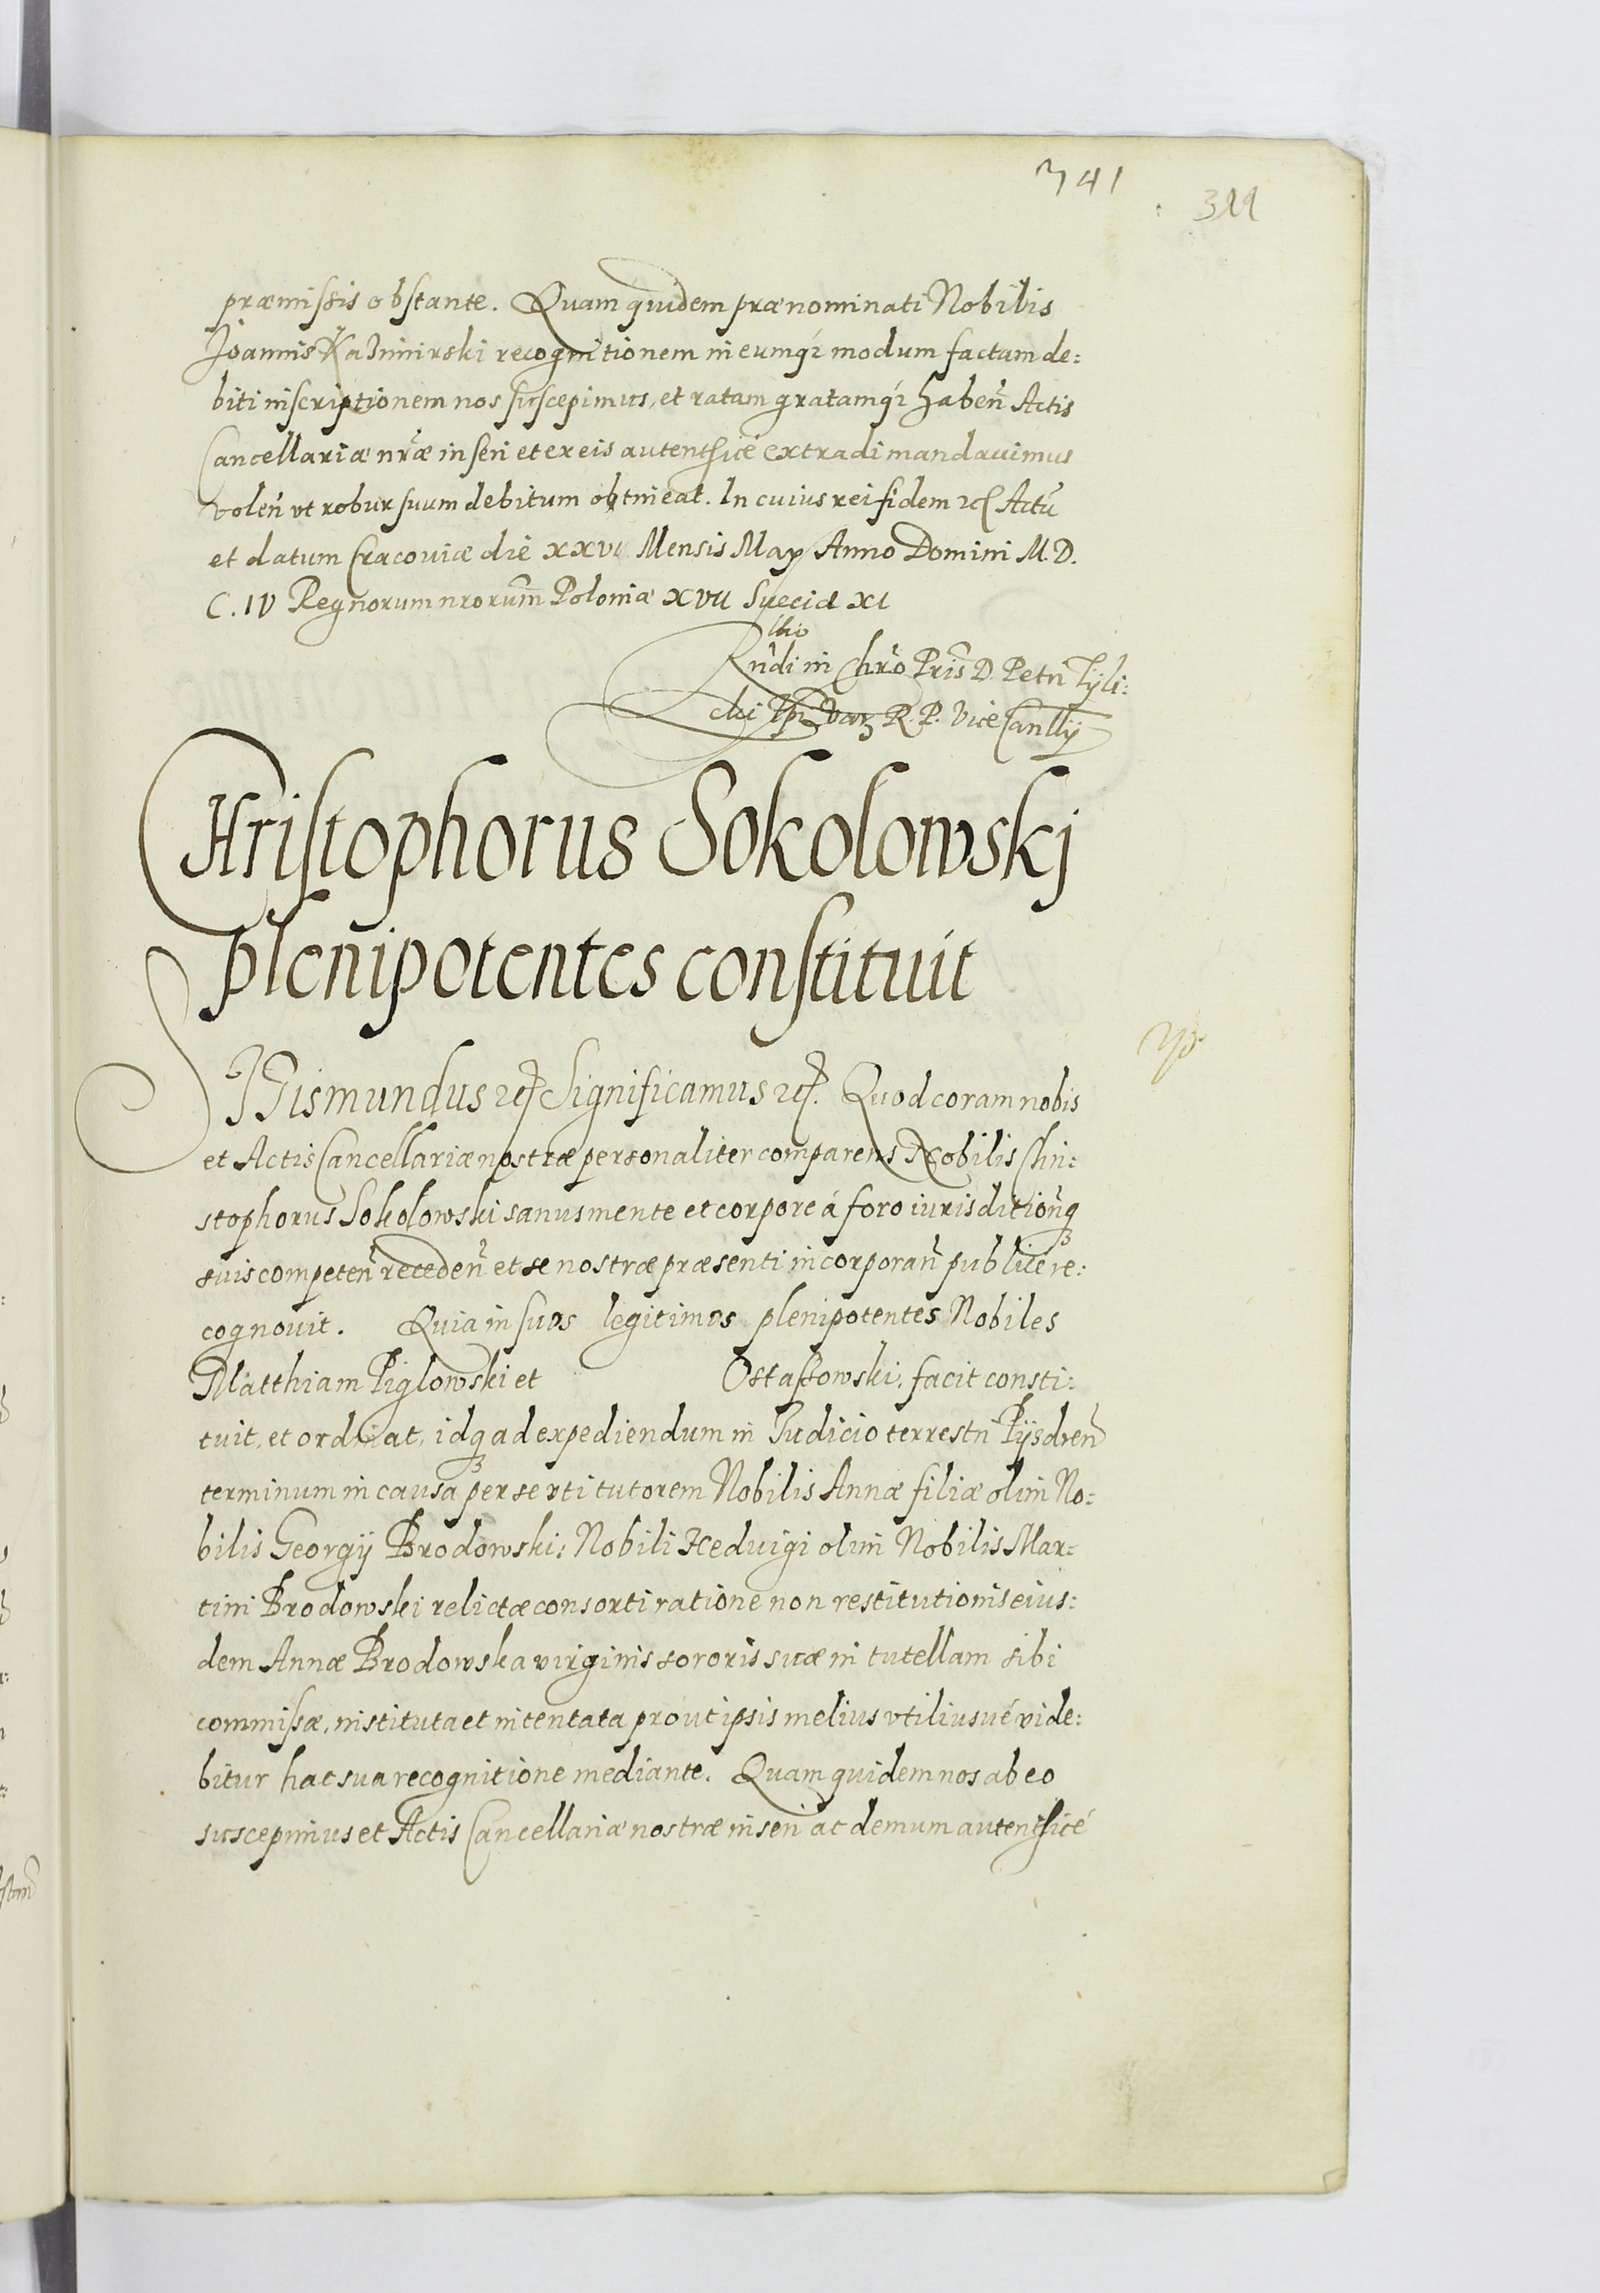 341
præmissis obstante. Quam quidem prænominati Nobilis
Joannis Kazimirski recognitionem in eumq́ȝ modum factam de:
biti inscriptionem nos suscepimus, et ratam gratamq́ȝ haben̄ Actis
Cancellariæ nr̄æ inseri et ex eis autenthice extradi mandauimus
volen̄ vt robur suum debitum obtineat. In cuius rei fidem etc Actū
et datum Cracoviæ die XXVI Mensis Maÿ Anno Domini M.D.
C.IV Regnorum nrorum̄ Poloniæ XVII Sueciæ XI
Rn̄di in Chrō Pris̄ D. Petri Tyli:
cki R.P. Vice Canllÿ
CHristophorus Sokolowskj
plenipotentes constituit
SIGismundus etc Significamus etc. Quod coram nobis
et Actis Cancellariæ nostræ personaliter comparens Nobilis Chri:
stophorus Sokolowski sanus mente et corpore á foro iurisditioñqȝ
suis competen̄ receden̄ et se nostræ præsenti incorporan̄ publice re:
cognovit. Quia in suos legitimos plenipotentes Nobiles
Matthiam Piglowski et Ostaßowski, facit consti:
tuit, et ordinat, idqȝ ad expediendum in Judicio terrestri Pÿsdren̄
terminum in causa per se vti tutorem Nobilis Annæ filiæ olim No:
bilis Georgÿ Brodowski; Nobili Hedvigi olim Nobilis Mar:
tini Brodowski relictæ consorti ratione non restitutionis eius:
dem Annæ Brodowska virginis sororis suæ in tutellam sibi
commissæ, instituta et intentata prout ipsis melius vtiliusué vide:
bitur hac sua recognitione mediante. Quam quidem nos ab eo
suscepimus et Actis Cancellariæ nostræ inseri ac demum autenthicé